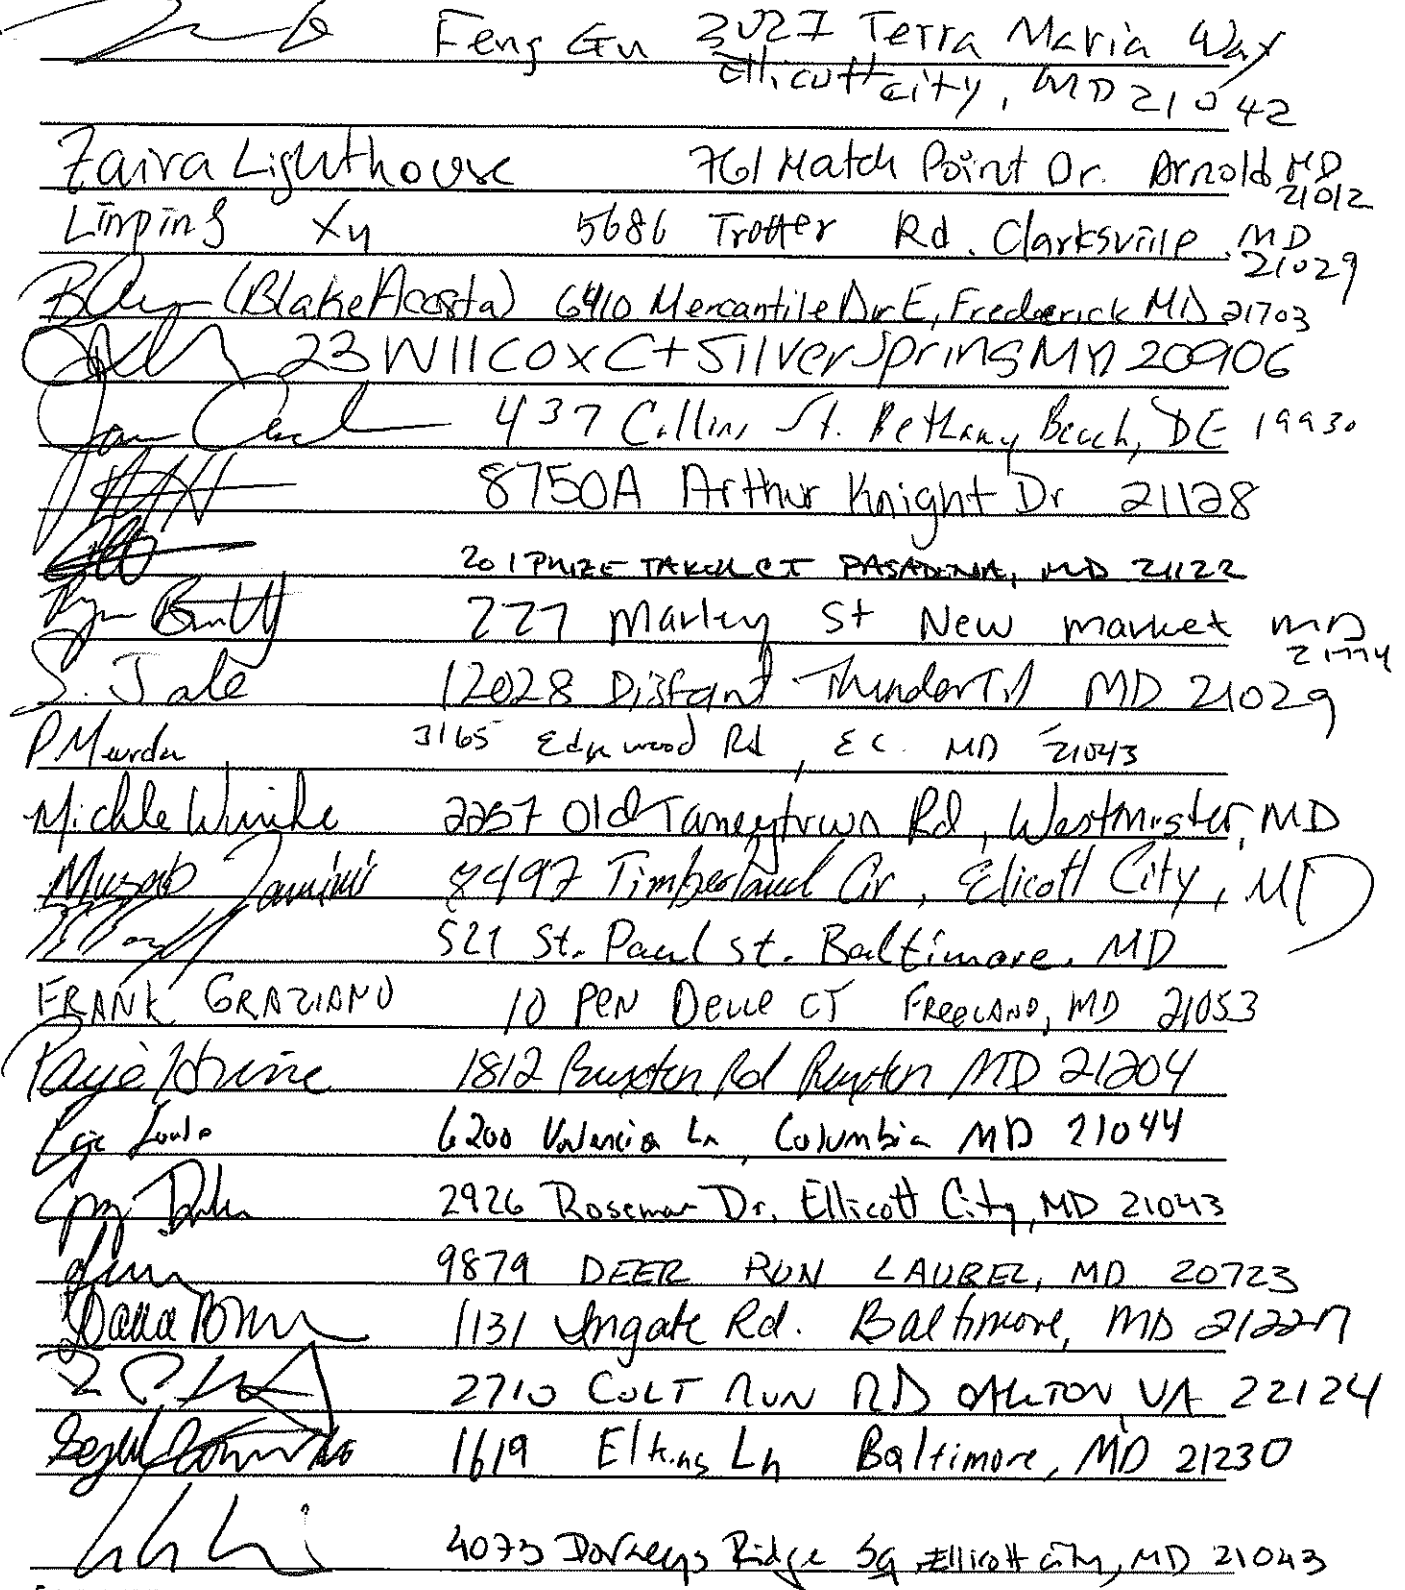 Feng Gu 3027 Terra Maria Way
Ellicott city, MD 21042
Zaira Lighthouse 761 Match Point Dr. Arnold MD 21012
Linping Xu 5686 Trotter Rd. Clarksville, MD 21029
(Blake Acosta) 6410 Mercantile Dr E, Frederick MD 21703
23 Wilcox Ct Silver Spring MD 20906
437 Collins St. Bethany Beach, DE 19930
8750A Arthur Knight Dr 21128
201 PRIZE TAKER CT PASADENA, MD 21122
227 Marley St New market MD 21774
S. Jale 12028 Distant Thunder Trl MD 21029
P Meurda 3165 Edgewood Rd, E C. MD 21043
Michele 2257 Old Taneytown Rd, Westminster, MD
Musab 8497 Timberland Cir, Elicott City, MD
521 St. Paul St. Baltimore, MD
FRANK GRAZIANO 10 PEN DELLE CT FREELAND, MD 21053
Paige 1812 Ruxton Rd Ruxton MD 21204
6200 Valencia Ln, Columbia MD 21044
2926 Rosemar Dr. Ellicott City, MD 21043
9879 DEER RUN LAUREL, MD 20723
Dana 1131 Ingate Rd. Baltimore, MD 21227
2710 COLT RUN RD OAKTON, VA 22124
1619 Elkins Ln Baltimore, MD 21230
4073 Dorseys Ridge Sq, Ellicott city, MD 21043